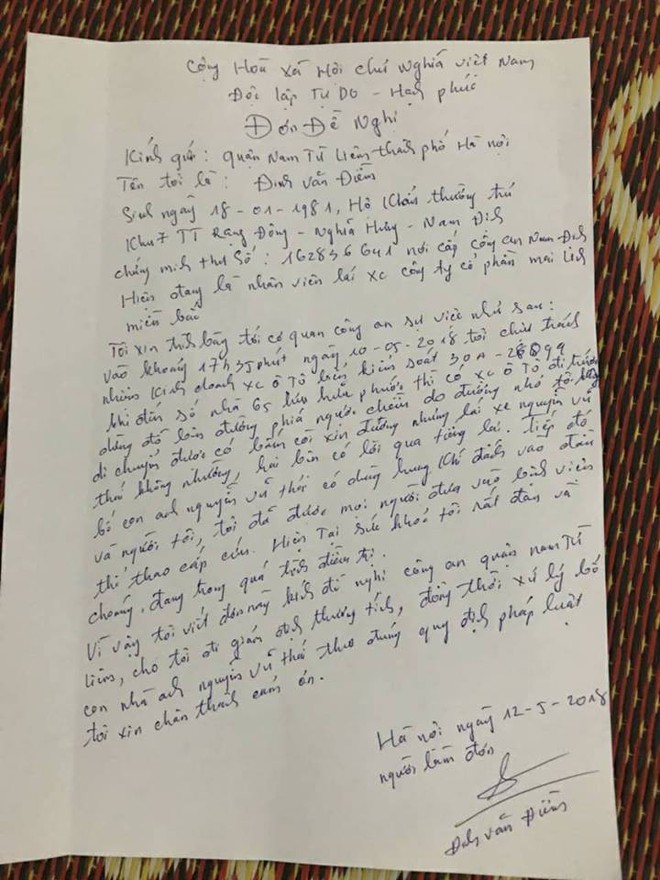 Cộng Hoà xã Hội chủ Nghĩa việt Nam
Độc lập Tự Do - Hạnh phúc
Đơn Đề Nghị
Kính gửi : quận Nam Từ Liêm thành phố Hà nội
Tên tôi là : Đinh Văn Điềm
Sinh ngày 18-01-1981, Hộ khẩu thường trú
Khu 7 TT Rạng Đông - Nghĩa Hưng - Nam Định
chứng minh thư số : 162836641 nơi cấp công an Nam Định
Hiện đang là nhân viên lái xe công ty cổ phần mai linh
miền bắc
Tôi xin trình bày tới cơ quan công an sự việc như sau :
vào khoảng 17h35 phút ngày 10-05-2018 tôi chịu trách
nhiệm kinh doanh xe ô tô biển kiểm soát 30A-
khi đến số nhà 65 lưu hữu phước thì có xe ô tô đi trước
dừng đỗ bên đường phía ngược chiều do đường nhỏ tôi
di chuyển được có bấm còi xin đường nhưng lái xe nguyễn vũ
thái không nhường, hai bên có lời qua tiếng lại. Tiếp đó
bố con anh nguyễn vũ thái có dùng hung khí đánh vào đầu
và người tôi, tôi đã được mọi người đưa vào bệnh viện
thể thao cấp cứu. Hiện Tại sức khoẻ tôi rất đau và
choáng, đang trong quá trình điều trị.
Vì vậy tôi viết đơn này kính đề nghị công an quận nam Từ
liêm, cho tôi đi giám định thương tích, đồng thời xử lý bố
con nhà anh nguyễn vũ thái theo đúng quy định pháp luật
tôi xin chân thành cảm ơn.
Hà nội ngày 12-5-2018
người làm đơn
Đinh Văn Điềm